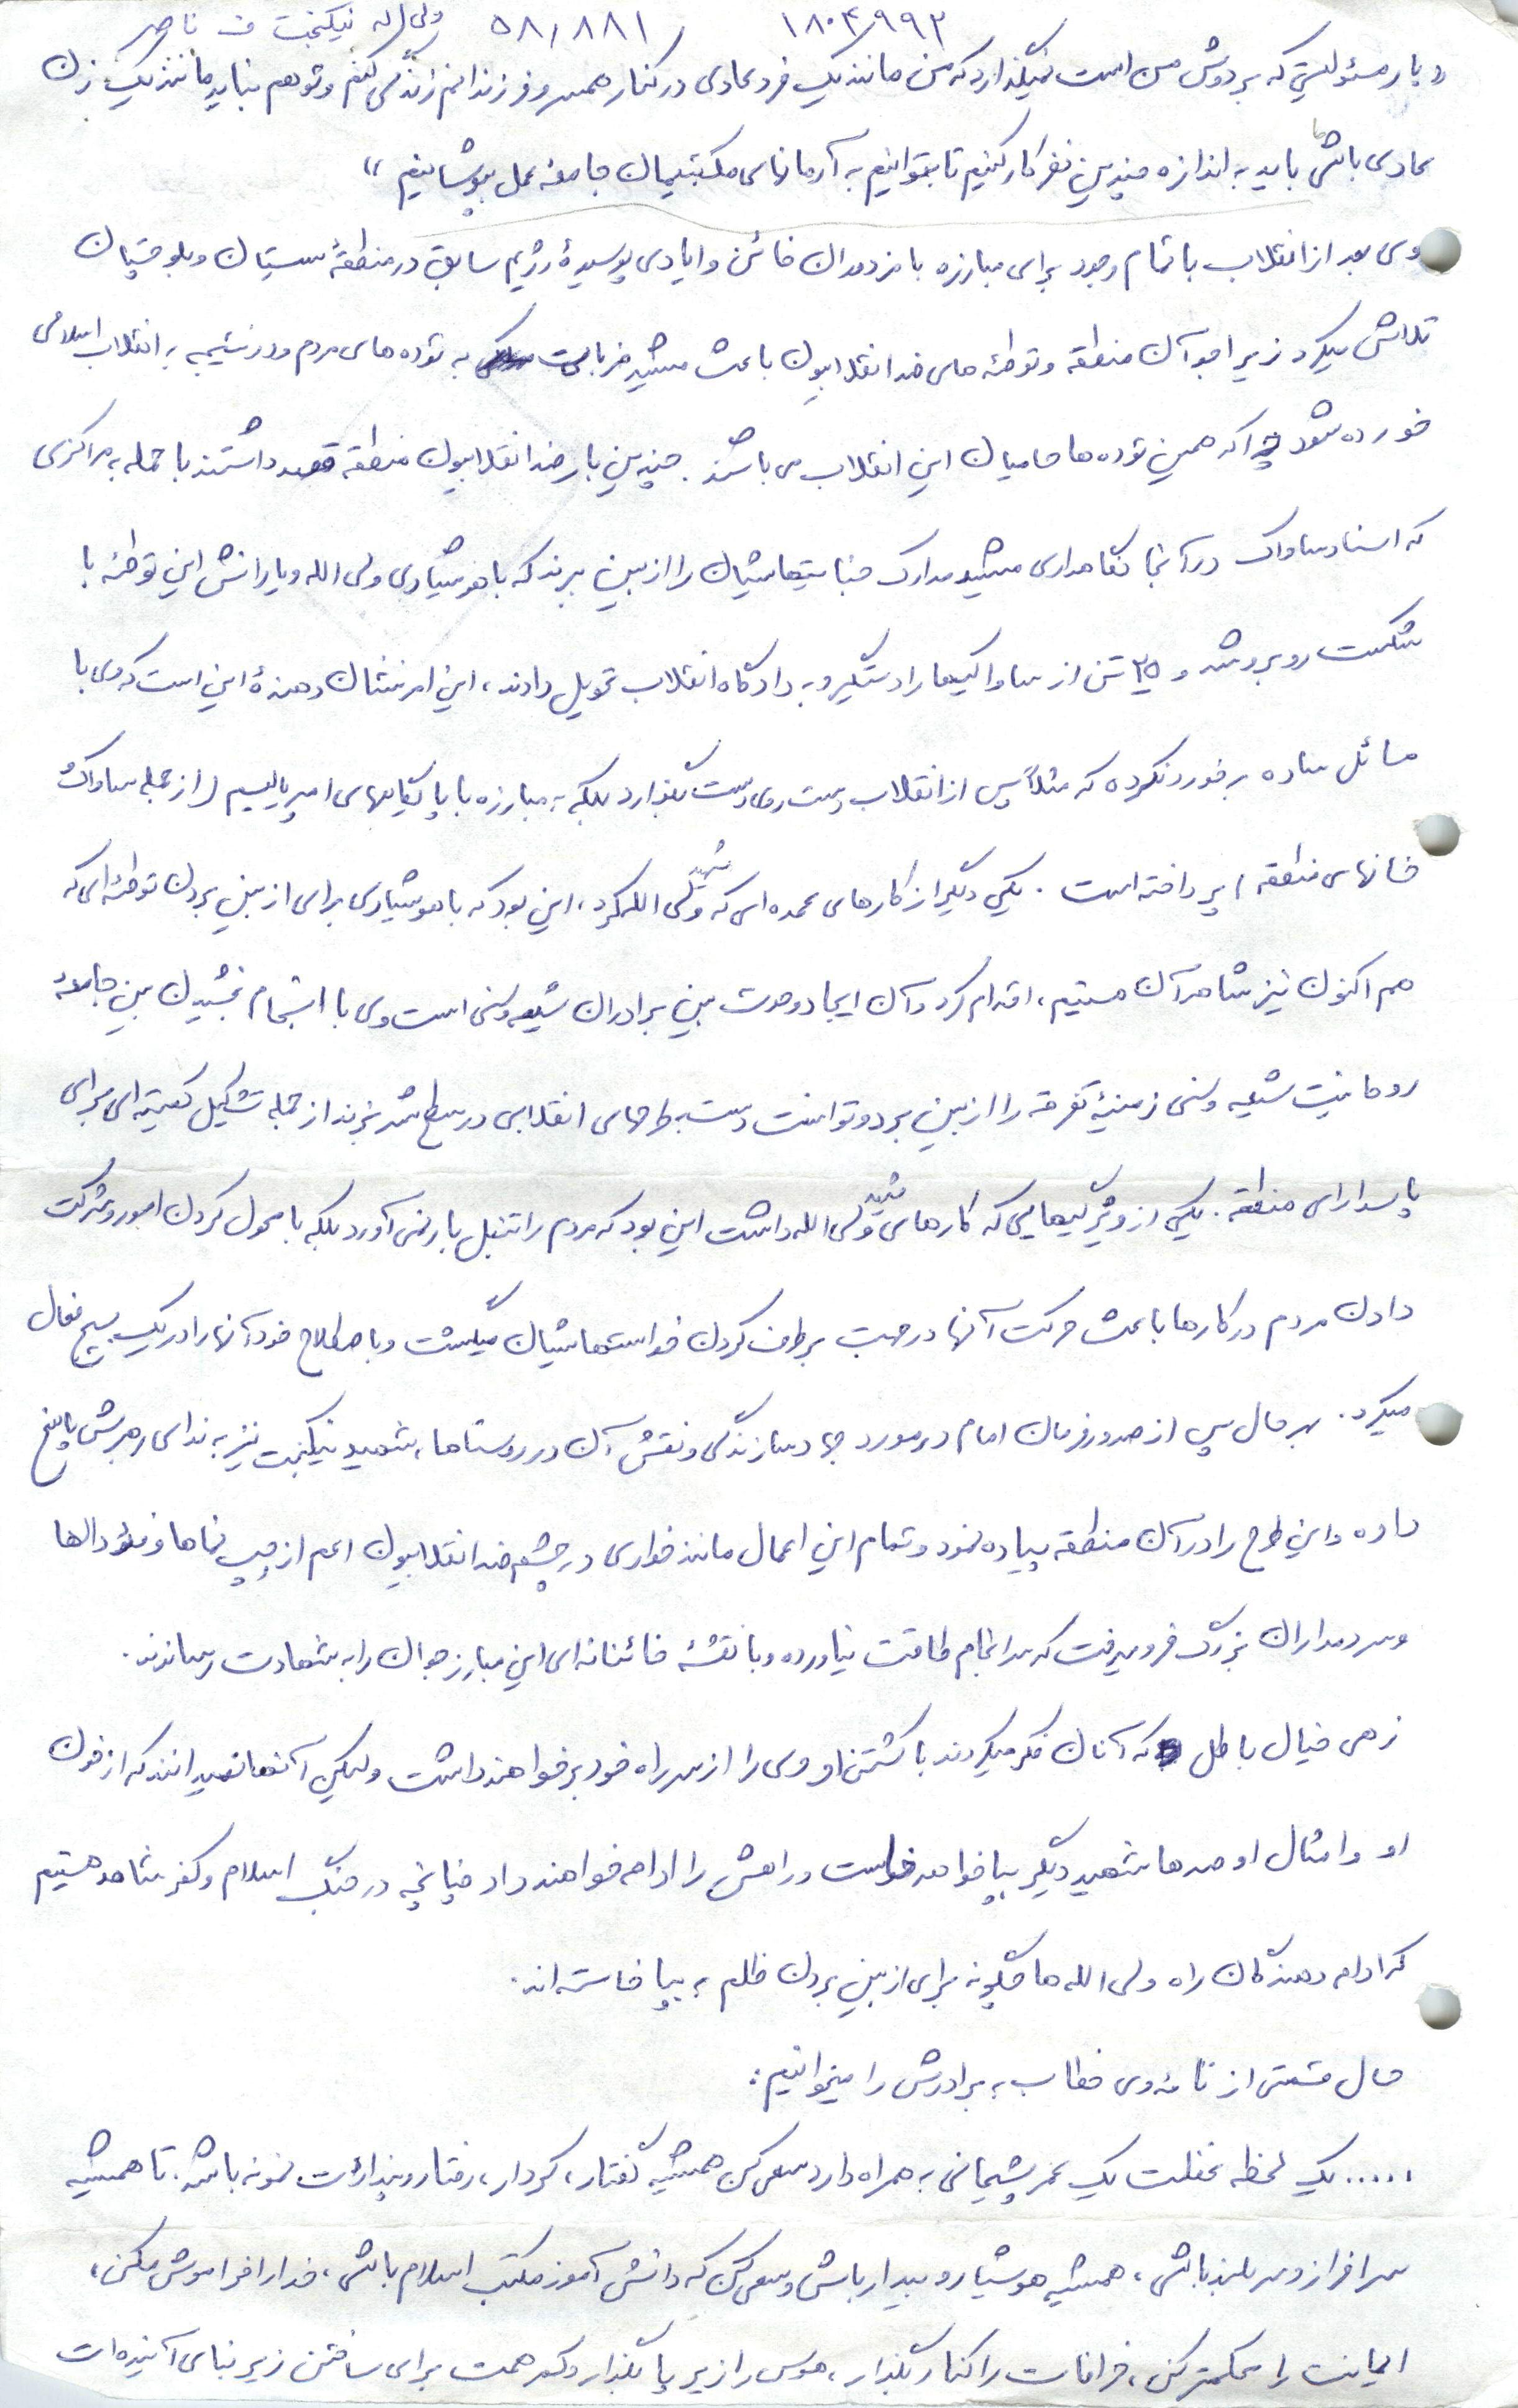 ۱۸۰۴۹۹۲ ۵۸/۸۸۱ ولی اله نیکبخت ف ناصر
و بار مسئولیتی که بر دوش من است نمیگذارد که من مانند یک فرد عادی در کنار همسر و فرزندانم زندگی کنم و تو هم نباید مانند یک زن
عادی باشی ما باید به اندازه چندین نفر کار کنیم تا بتوانیم به آرمانهای مکتبیمان جامه عمل بپوشانیم "
وی بعد از انقلاب با تمام وجود برای مبارزه با مزدوران خائن و ایادی پوسیدهٔ رژیم سابق در منطقهٔ سیستان و بلوچستان
تلاش میکرد زیرا جو آن منطقه و توطئه های ضد انقلابیون باعث میشد ضرباتی به توده های مردم و در نتیجه به انقلاب اسلامی
خورده شود چرا که همین توده ها حامیان این انقلاب می باشند. چندین بار ضد انقلابیون منطقه قصد داشتند با حمله به مراکزی
که اسناد ساواک در آنجا نگاهداری میشد مدارک جنایتهایشان را از بین ببرند که با هوشیاری ولی الله و یارانش این توطئه با
شکست روبرو شد و ۲۵ تن از ساواکیها را دستگیر و به دادگاه انقلاب تحویل دادند، این امر نشان دهندهٔ این است که وی با
مسائل ساده برخورد نکرده که مثلاً پس از انقلاب دست روی دست بگذارد بلکه به مبارزه با پایگاههای امپریالیسم (از جمله ساواک و
خانهای منطقه) پرداخته است. یکی دیگر از کارهای عمده ای که شهید ولی الله کرد، این بود که با هوشیاری برای از بین بردن توطئه ای که
هم اکنون نیز شاهد آن هستیم، اقدام کرد و آن ایجاد وحدت بین برادران شیعه و سنی است وی با انسجام بخشیدن بین جامعهٔ
روحانیت شیعه و سنی زمینهٔ تفرقه را از بین برد و توانست دست به طرحهای انقلابی در سطح شهر بزند از جمله تشکیل کمیته ای برای
پاسدارای منطقه. یکی از ویژگیهایی که کارهای شهید ولی الله داشت این بود که مردم را تنبل بار نمی آورد بلکه با محول کردن امور و شرکت
دادن مردم در کارها باعث حرکت آنها در جهت برطرف کردن خواستهایشان میگشت و باصطلاح خود آنها را در یک بسیج فعال
میکرد. بهر حال پس از صدور فرمان امام در مورد جهاد سازندگی و نقش آن در روستاها، شهید نیکبخت نیز به ندای رهبرش پاسخ
داده و این طرح را در آن منطقه پیاده نمود و تمام این اعمال مانند خواری در چشم ضد انقلابیون اعم از چپ نماها و فئودالها
و سردمداران بزرگ فرو میرفت که سرانجام طاقت نیاورده و با نقشهٔ خائنانه ای این مبارز جوان را به شهادت رساندند.
زهی خیال باطل که آنان فکر میکردند با کشتن او وی را از سر راه خود برخواهند داشت ولیکن آنها نمیدانند که از خون
او و امثال او صدها شهید دیگر بپا خواهد خاست و راهش را ادامه خواهند داد چنانچه در جنگ اسلام و کفر شاهد هستیم
که ادامه دهندگان راه ولی الله ها چگونه برای از بین بردن ظلم به بپا خاسته اند.
حال قسمتی از نامه وی خطاب به برادرش را میخوانیم:
..... یک لحظه غفلت یک عمر پشیمانی به همراه دارد سعی کن همیشه گفتار، کردار، رفتار و پندارت نمونه باشد. تا همیشه
سرافراز و سربلند باشی، همیشه هوشیار و بیدار باش و سعی کن که دانش آموز مکتب اسلام باشی، خدا را فراموش مکن،
ایمانت را محکمتر کن، خرافات را کنار بگذار، هوس را زیر پا بگذار و کمر همت برای ساختن زیر بنای آینده ات